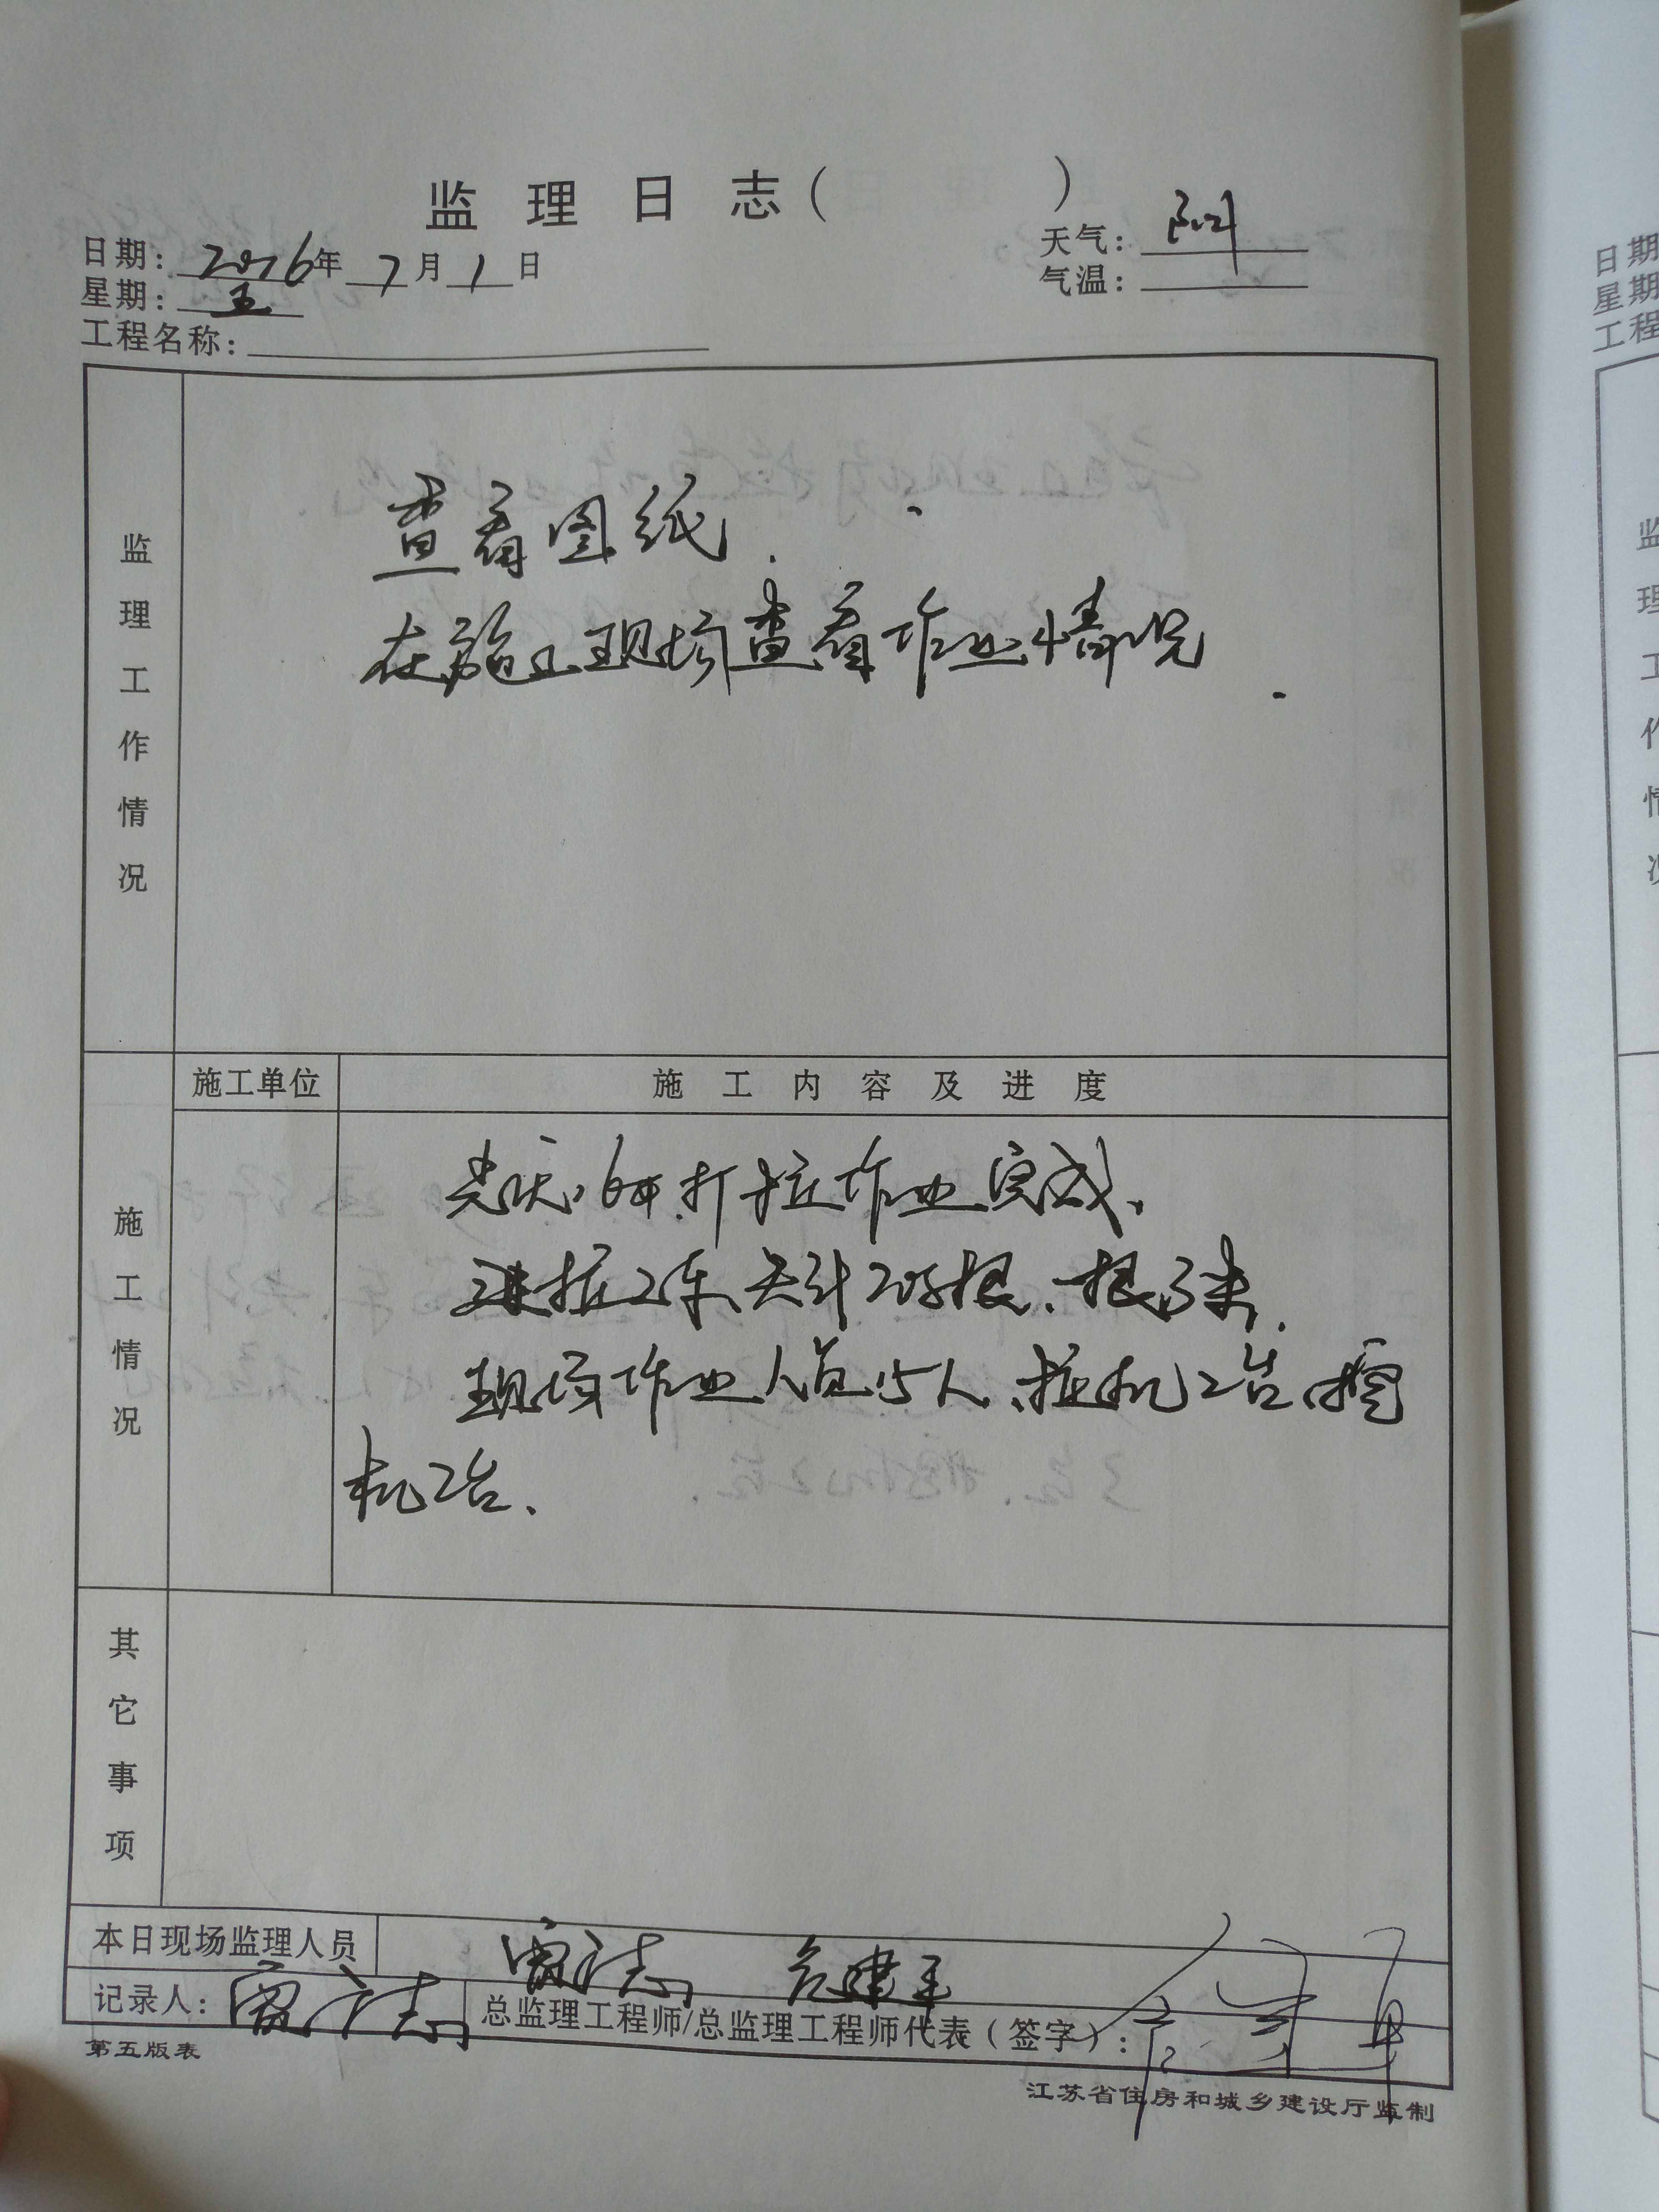 监理日志（ ）
日期：2016年7月1日
天气：阴
星期：五
气温：
工程名称：
监理工作情况
查看图纸.
在施工现场查看作业情况.
施工单位
施工内容及进度
施工情况
打桩作业完成、
进桩2车、共计 根、一根 米.
现场作业人员15人、桩机2台、挖
机2台、
其它事项
本日现场监理人员
记录人：
总监理工程师/总监理工程师代表（签字）：
第五版表
江苏省住房和城乡建设厅监制
日期
星期
工程